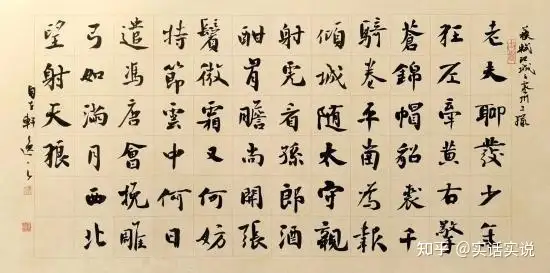 蘇軾江城子密州出獵
老夫聊發少年
狂左牽黃右擎
蒼錦帽貂裘千
騎卷平岡為報
傾城隨太守親
射虎看孫郎酒
酣胸膽尚開張
鬢微霜又何妨
持節雲中何日
遣馮唐會挽雕
弓如滿月西北
望射天狼
知乎 @实话实说